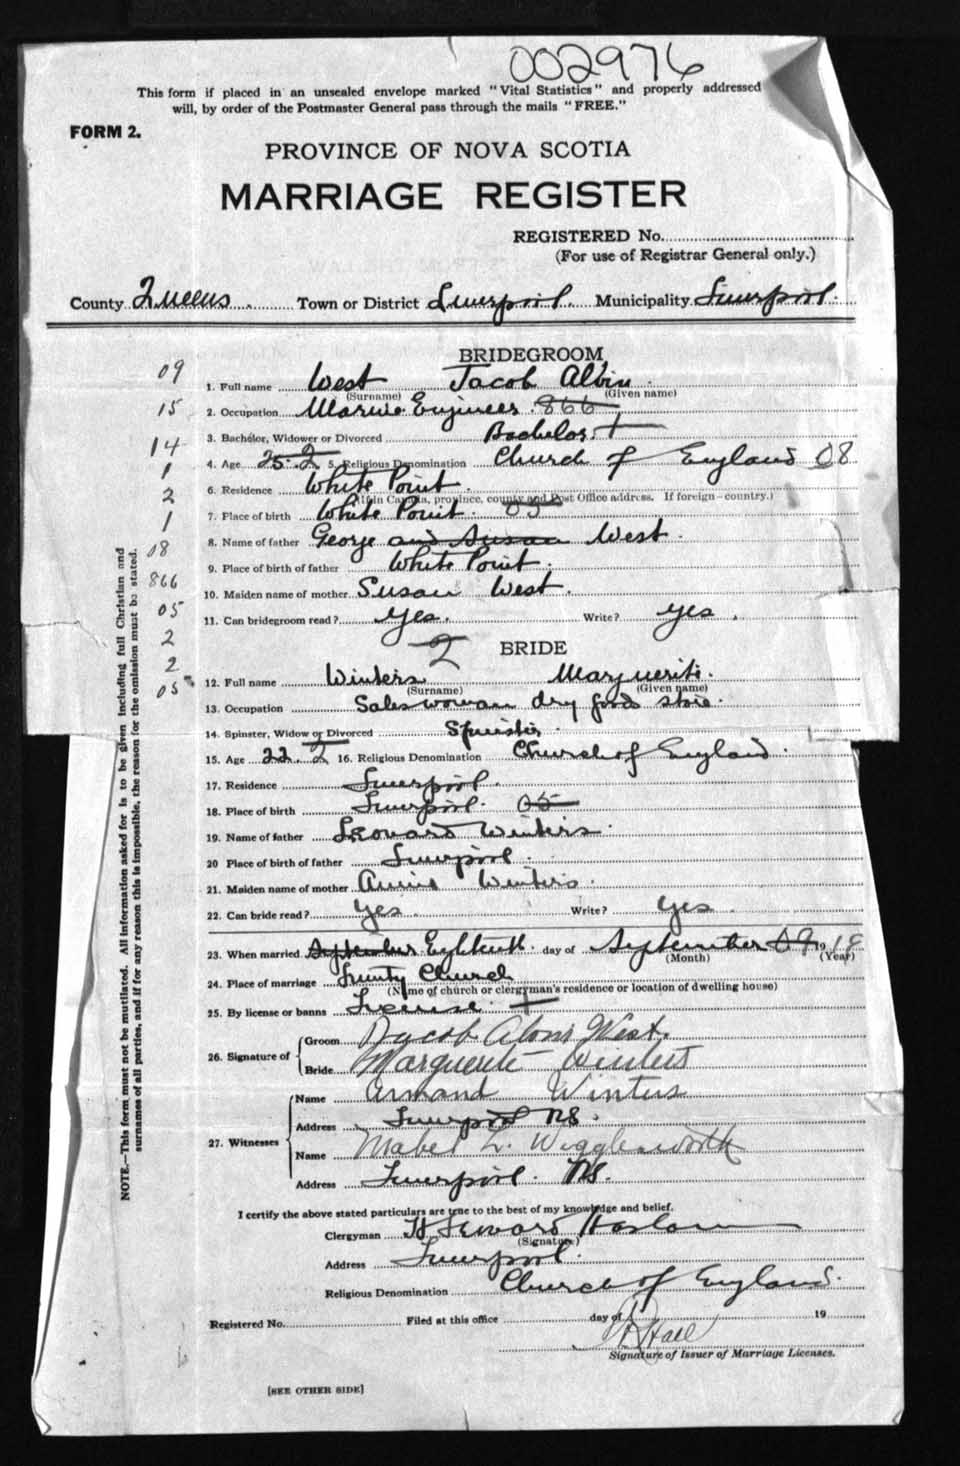 002976
This form if placed in an unsealed envelope marked "Vital Statistics" and properly addressed
will, by order of the Postmaster General pass through the mails "FREE."
FORM 2.
PROVINCE OF NOVA SCOTIA
MARRIAGE REGISTER
REGISTERED No.
(For use of Registrar General only.)
County Queens Town or District Liverpool Municipality Liverpool
BRIDEGROOM
09
1. Full name West Jacob Albin
(Surname) (Given name)
15
2. Occupation Marine Engineer 866
3. Bachelor, Widower or Divorced Bachelor
14
4. Age 25 2 5. Religious Denomination Church of England 08
1
6. Residence White Point
(If in Canada, province, county and Post Office address. If foreign—country.)
2
7. Place of birth White Point 05
1
8. Name of father George and Susan West
08
9. Place of birth of father White Point
866
10. Maiden name of mother Susan West
05
11. Can bridegroom read? Yes. Write? yes
2
2 BRIDE
2
12. Full name Winters Marguerite
05
(Surname) (Given name)
13. Occupation Saleswoman dry goods store
14. Spinster, Widow or Divorced Spinster
15. Age 22 2 16. Religious Denomination Church of England
17. Residence Liverpool
18. Place of birth Liverpool 05
19. Name of father Leonard Winters
20 Place of birth of father Liverpool
21. Maiden name of mother Annie Winters
22. Can bride read? Yes Write? Yes
23. When married September Eighteenth day of September 09 1918
(Month) (Year)
24. Place of marriage Trinity Church
(Name of church or clergyman's residence or location of dwelling house)
25. By license or banns License
26. Signature of Groom Jacob Albin West
Bride Marguerite Winters
27. Witnesses
Name Armand Winters
Address Liverpool NS.
Name Mabel L. Wigglesworth
Address Liverpool. NS.
I certify the above stated particulars are true to the best of my knowledge and belief.
Clergyman Haslam
(Signature)
Address Liverpool
Religious Denomination Church of England
Registered No. Filed at this office day of 19
Hall
Signature of Issuer of Marriage Licenses.
[SEE OTHER SIDE]
NOTE.—This form must not be mutilated. All information asked for is to be given including full Christian and
surnames of all parties, and if for any reason this is impossible, the reason for the omission must be stated.